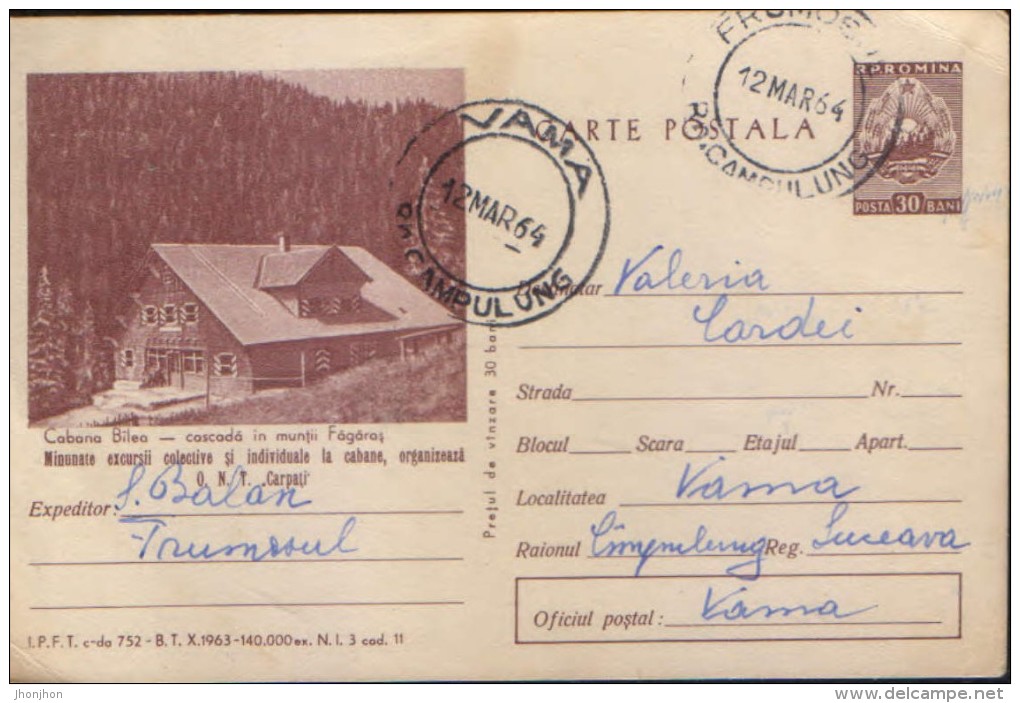 CARTE POSTALA
R.P.ROMINA
POSTA 30 BANI
12 MAR 64
CAMPULUNG
VAMA
12 MAR 64
CAMPULUNG
Cabana Bîlea — cascadă în munții Făgăraș
Minunate excursii colective și individuale la cabane, organizează
O. N. T. „Carpați"
Expeditor: S. Balan
Prețul de vînzare 30 bani
Valeria
Cardei
Strada Nr.
Blocul Scara Etajul Apart.
Localitatea Vama
Raionul Cîmpulung Reg. Suceava
Oficiul poștal: Vama
I.P.F.T. c-da 752 - B.T. X.1963-140.000 ex. N.I. 3 cad. 11
jhonjhon
www.delcampe.net